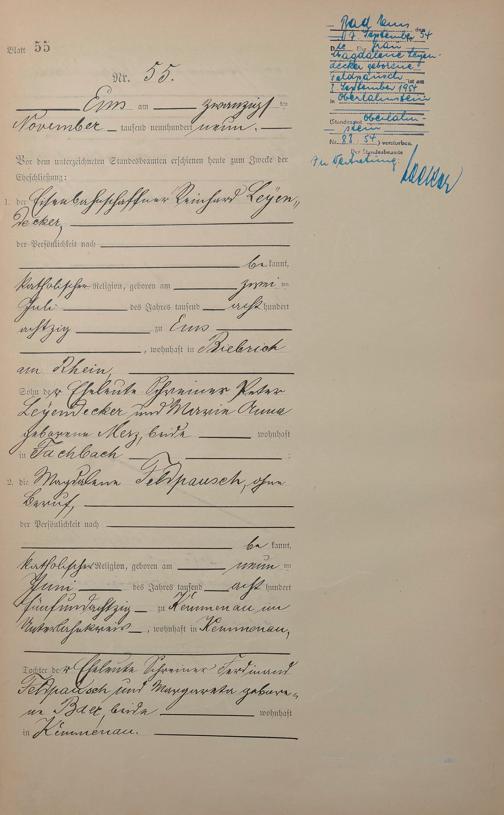 Blatt 55
Nr. 55.
Ems am zwanzigsten
November tausend neunhundert neun.
Vor dem unterzeichneten Standesbeamten erschienen heute zum Zwecke der
Eheschließung:
1. der Eisenbahnschaffner Reinhard Leyen-
decker,
der Persönlichkeit nach
be kannt,
katholischer Religion, geboren am zwei ten
Juli des Jahres tausend acht hundert
achtzig zu Ems
, wohnhaft in Biebrich
am Rhein,
Sohn der Eheleute Schreiner Peter
Leyendecker und Marie Anna
geborene Merz, beide wohnhaft
in Fachbach
2. die Magdalene Feldpausch, ohne
Beruf,
der Persönlichkeit nach
be kannt,
katholischer Religion, geboren am neun ten
Juni des Jahres tausend acht hundert
fünfundachtzig zu Kemmenau im
Unterlahnkreis, wohnhaft in Kemmenau,
Tochter der Eheleute Schreiner Ferdinand
Feldpausch und Margareta gebore-
ne Baer, beide wohnhaft
in Kemmenau.
Bad Ems den
17. September 54
Die Frau
Magdalene Leyen-
decker geborene
Feldpausch ist am
September 1954
in Oberlahnstein
(Standesamt Oberlahn-
stein
Nr. 88/54) verstorben.
Der Standesbeamte
In Vertretung: